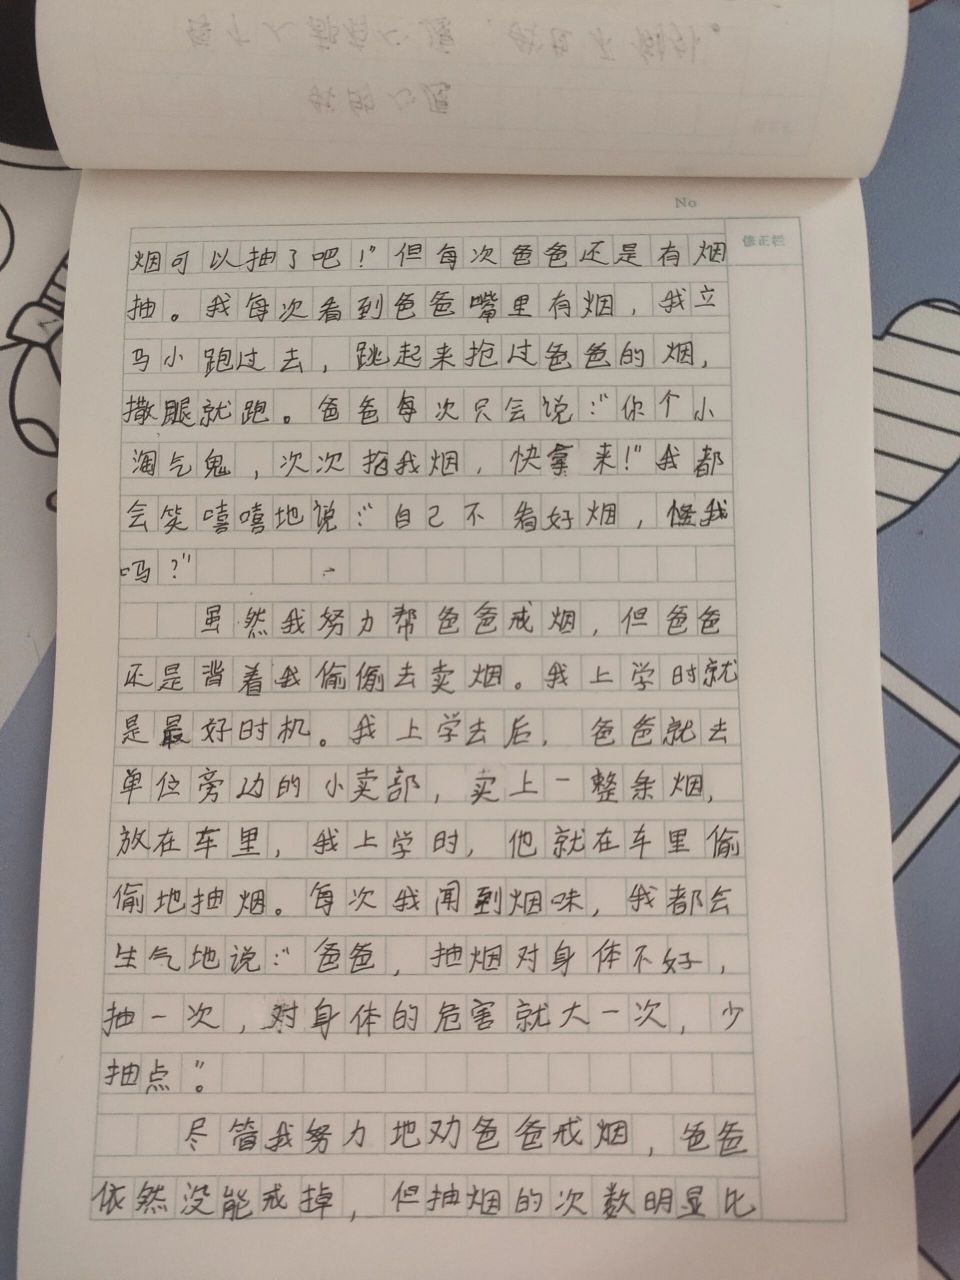 No
修正栏
烟可以抽了吧！”但每次爸爸还是有烟
抽。我每次看到爸爸嘴里有烟，我立
马小跑过去，跳起来抢过爸爸的烟，
撒腿就跑。爸爸每次只会说：“你个小
淘气鬼，次次抢我烟，快拿来！”我都
会笑嘻嘻地说：“自己不看好烟，怪我
吗？”
虽然我努力帮爸爸戒烟，但爸爸
还是背着我偷偷去卖烟。我上学时就
是最好时机。我上学去后，爸爸就去
单位旁边的小卖部，卖上一整条烟，
放在车里，我上学时，他就在车里偷
偷地抽烟。每次我闻到烟味，我都会
生气地说：“爸爸，抽烟对身体不好，
抽一次，对身体的危害就大一次，少
抽点”。
尽管我努力地劝爸爸戒烟，爸爸
依然没能戒掉，但抽烟的次数明显比